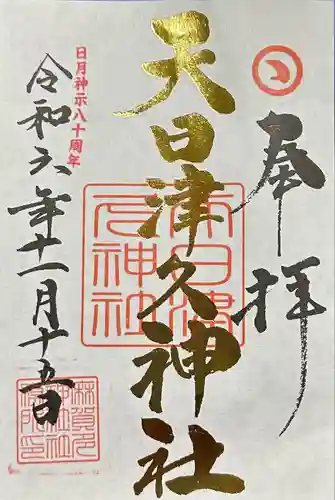 奉拝
天日津久神社
日月神示八十周年
令和六年十一月十五日